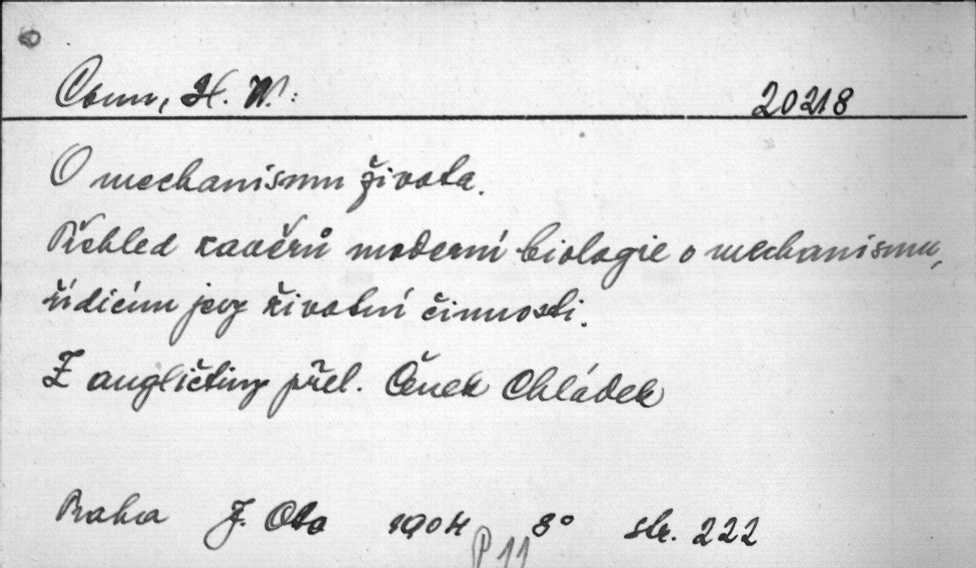 Conn, H. W.: 20218
O mechanismu života.
Přehled závěrů moderní biologie o mechanismu,
řídícím jevy životní činnosti.
Z angličtiny přel. Čeněk Chládek
Praha J. Otto 1904 8° str. 222
P 11